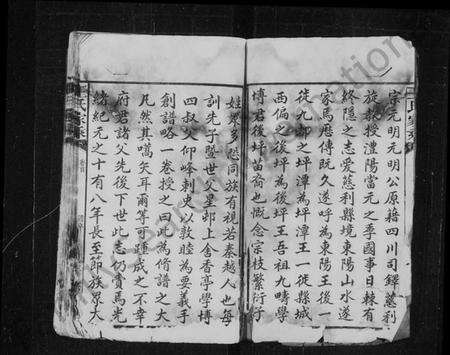 宗元明元明公原籍四川司鐸慈利
旋教授澧陽當元之季國事日棘有
終隱之志爰慈利縣境東陽山水遂
家焉歷傳既久遂呼為東陽王後一
徙九都之坪潭為坪潭王一徙縣城
西偏之後坪為後坪王吾祖九疇學
博君後坪苗裔也慨念宗枝繁衍子
姓眾多恐同族有視若秦越人也每
訓先子暨世父星邨上舍香亭學博
四叔父仰峰刺史以敦睦為要義手
創譜略一卷授之曰此為脩譜之大
凡然其嚆矢耳爾等可踵成之不幸
府君諸父先後下世此志仍賫焉光
緒紀元之十有八年長至節族眾大